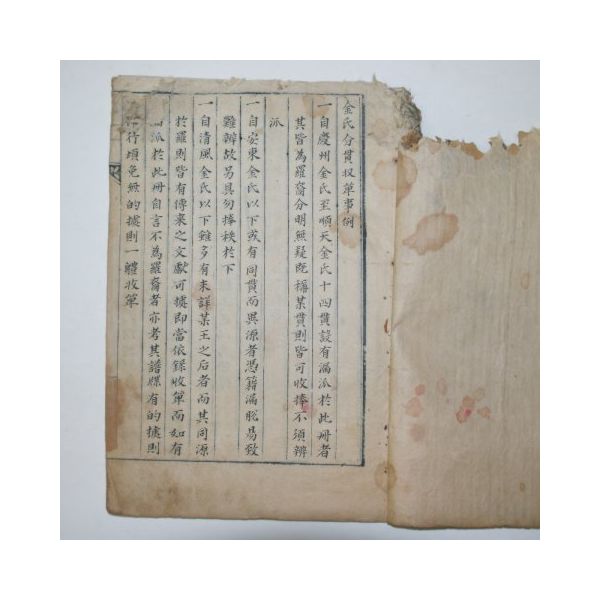 金氏分貫収單事例
一自慶州金氏至順天金氏十四貫設有漏派於此冊者
其皆為羅裔分明無疑既稱某貫則皆可收捧不須辨
派
一自安東金氏以下或有同貫而異源者憑籍漏脫易致
難辨故另具勿捧秩於下
一自清風金氏以下雖多有未詳某王之后者而其同源
於羅則皆有傳來之文獻可據即當依錄收單而如有
派於此冊自言不為羅裔者亦考其譜牒有的據則
行頃免無的據則一軆收單